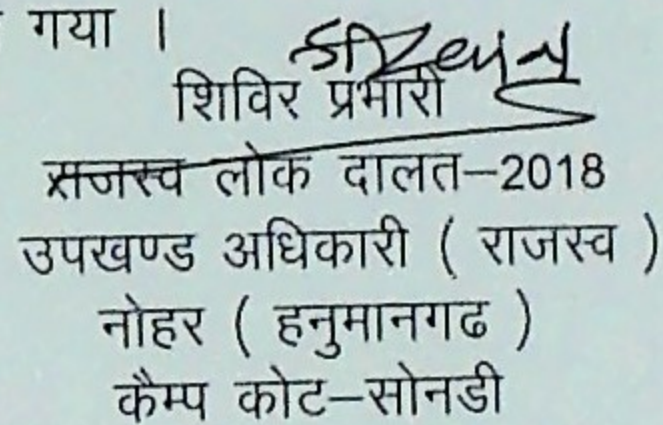 गया ।
शिविर प्रभारी
राजस्व लोक दालत–2018
उपखण्ड अधिकारी ( राजस्व )
नोहर ( हनुमानगढ )
कैम्प कोट–सोनडी